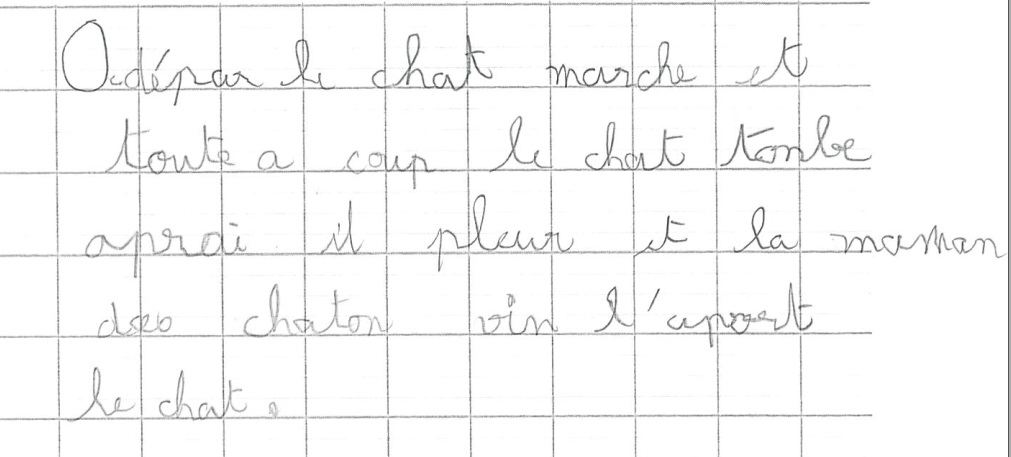 O dépar le chat marche et
toute a coup le chat tombe
aprai il pleur et la maman
des chaton vin l'aport
le chat.